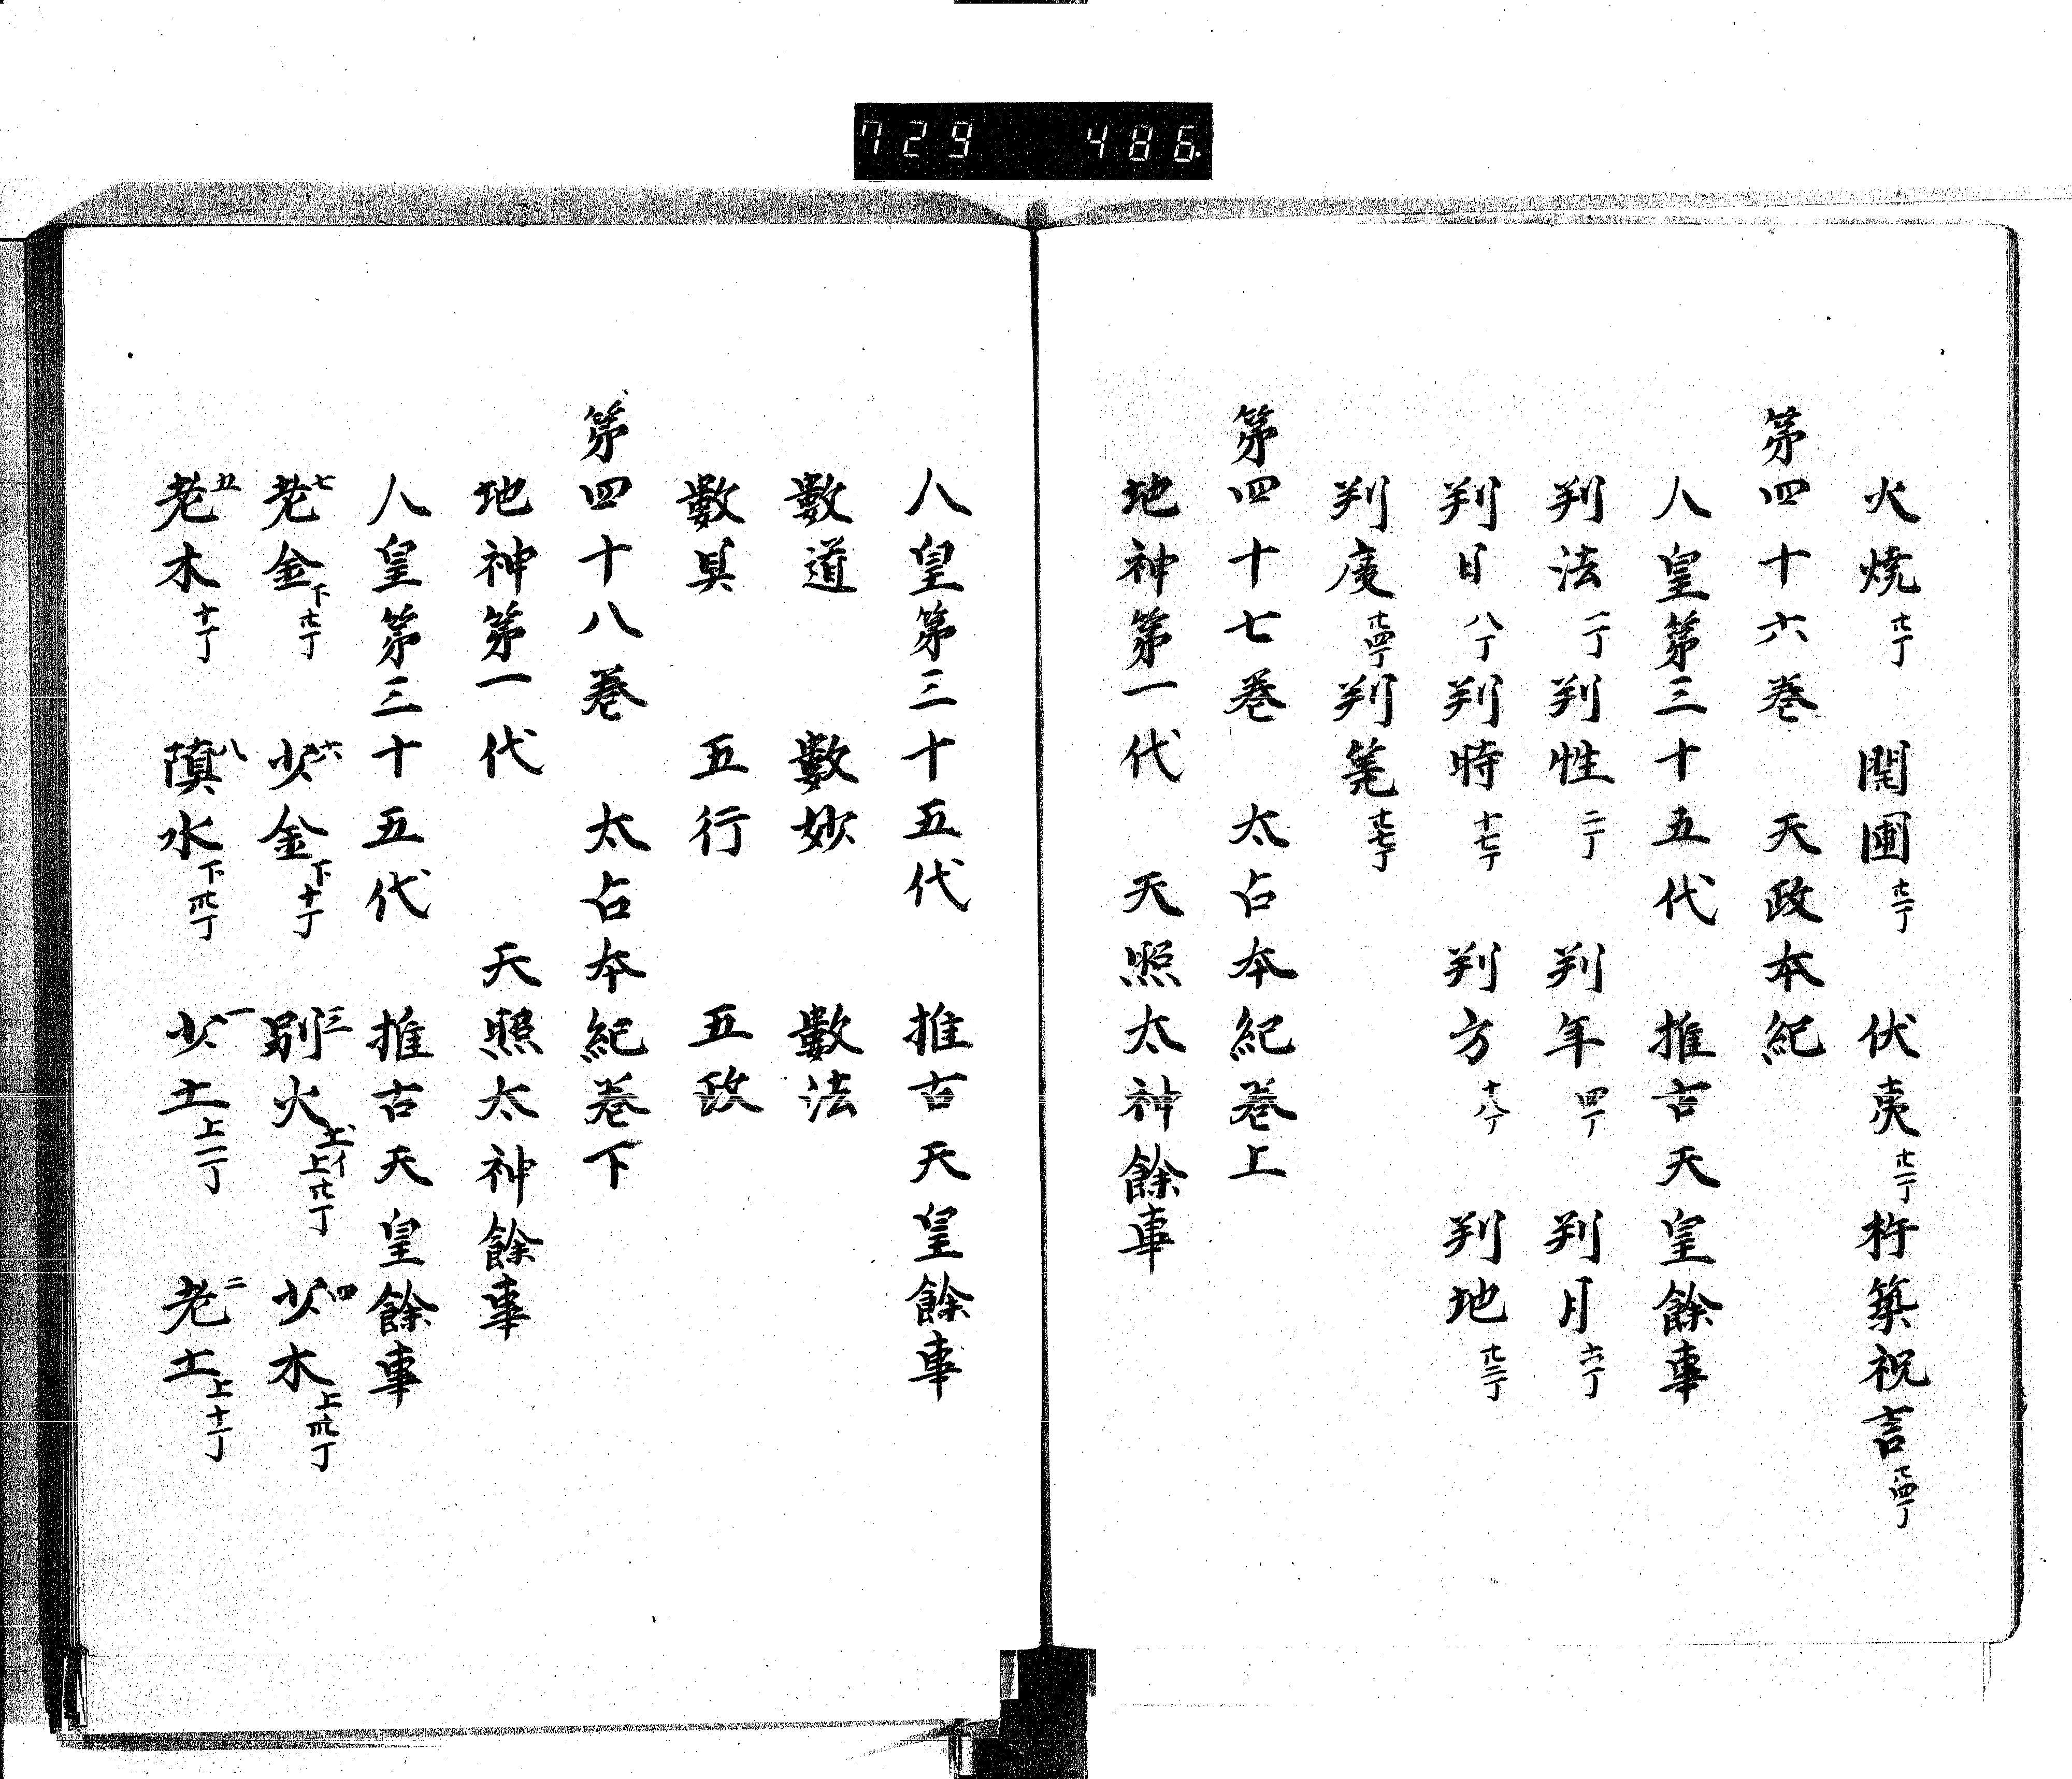 729 486
火燒 廿丁 閇圃 廿一丁 伏夷 廿二丁 杵築祝言 廿四丁
第四十六巻 天政本紀
人皇第三十五代 推古天皇餘事
判法 一丁 判性 二丁 判年 四丁 判月 六丁
判日 八丁 判時 十七丁 判方 十八丁 判地 廿二丁
判慶 廿四丁 判筮 廿七丁
第四十七巻 太占本紀巻上
地神第一代 天照太神餘事
人皇第三十五代 推古天皇餘事
數道 數妙 數法
數具 五行 五政
第四十八巻 太占本紀巻下
地神第一代 天照太神餘事
人皇第三十五代 推古天皇餘事
七 老金 下廿丁 六 少金 下十丁 三 別火 上廿丁 四 少木 上卅丁
五 老木 十丁 八 水 下卅丁 一 少土 上一丁 二 老土 上十丁